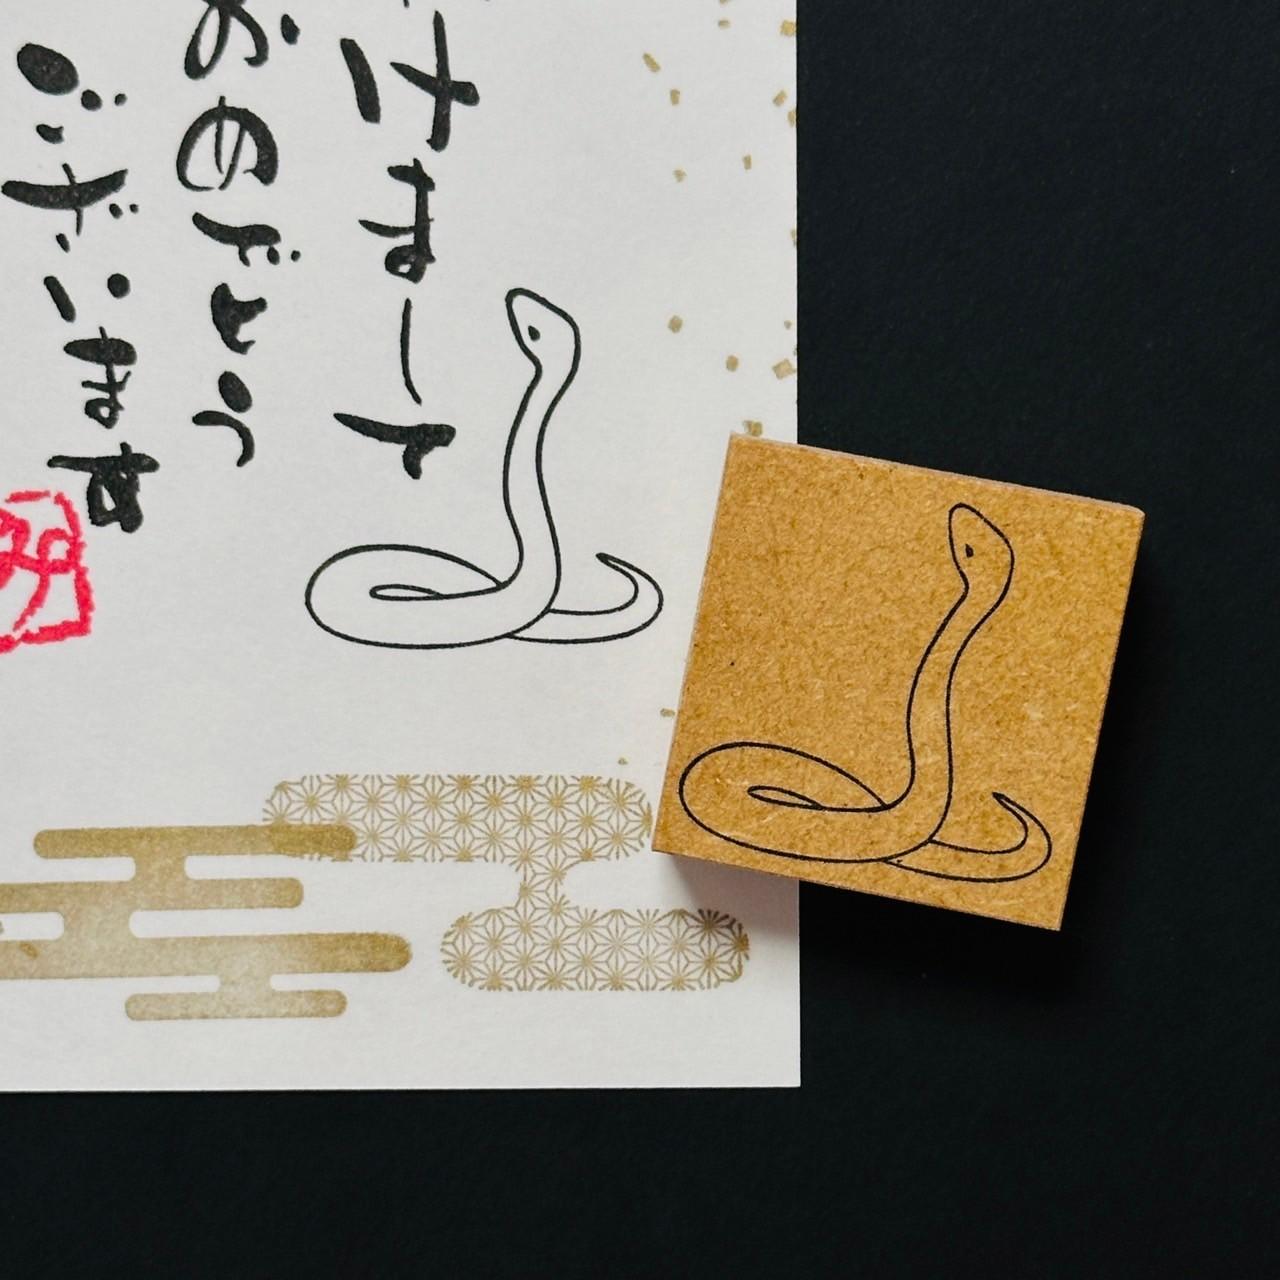 けまして
おめでとう
ございます